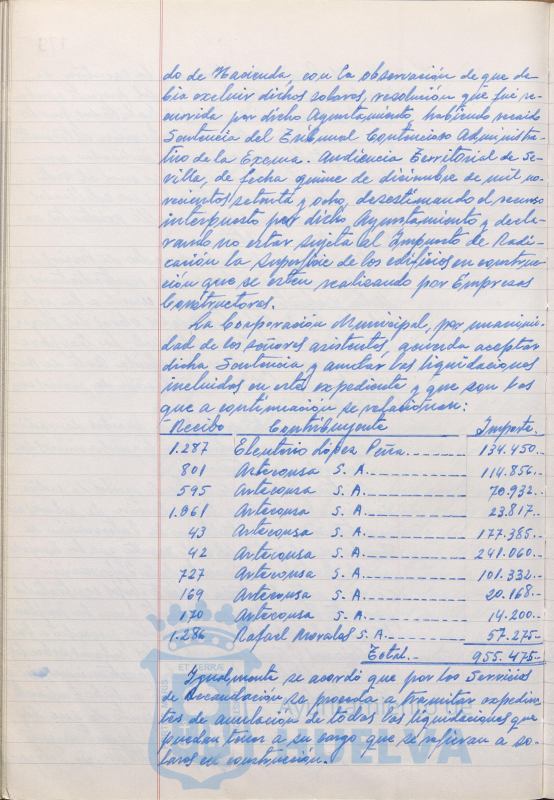 do de Hacienda, con la observación de que de-
bia excluir dichos solares, resolución que fué re-
currida por dicho Ayuntamiento, habiendo recaido
Sentencia del Tribunal Contencioso Administra-
tivo de la Excma. Audiencia Territorial de Se-
villa, de fecha quince de diciembre de mil no-
vecientos setenta y ocho, desestimando el recurso
interpuesto por dicho Ayuntamiento y decla-
rando no estar sujeta al Impuesto de Radi-
cación la superficie de los edificios en construc-
ción que se esten realizando por Empresas
Constructoras.
La Corporación Municipal, por unanimi-
dad de los señores asistentes, acuerda aceptar
dicha Sentencia y anular las liquidaciones
incluidas en este expediente y que son las
que a continuación se relacionan:
Recibo Contribuyente Importe.
1.287 Eleuterio López Peña. 134.450.-
801 Arteconsa S. A. 114.856.-
595 Arteconsa S. A. 70.932.-
1.061 Arteconsa S. A. 23.817.-
43 Arteconsa S. A. 177.385.-
42 Arteconsa S. A. 241.060.-
727 Arteconsa S. A. 101.332.-
169 Arteconsa S. A. 20.168.-
170 Arteconsa S. A. 14.200.-
1.286 Rafael Morales S. A. 57.275.-
Total. 955.475.-
Igualmente se acordó que por los Servicios
de Recaudación se proceda a tramitar expedien-
tes de anulación de todas las liquidaciones que
puedan tener a su cargo que se refieran a so-
lares en construcción.
HUELVA